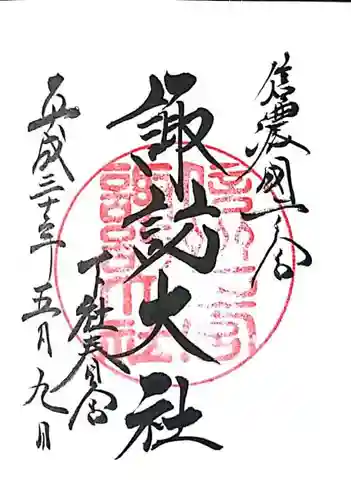 信濃国一之宮
諏訪大社
下社春宮
平成三十年五月九日